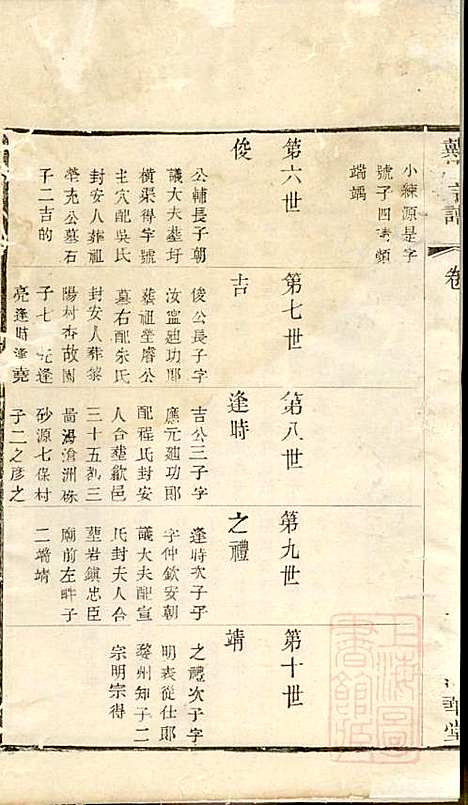 譜
卷
華堂
小練源是字
號子四
第六世
俊
公輔長子朝
議大夫葬圩
橫渠得字號
主穴配吳氏
封安人葬祖
塋充公墓右
子二吉的
第七世
吉
俊公長子字
汝寧廸功郎
葬祖塋睿公
墓右配朱氏
封安人葬黎
陽村杏故園
子七 逢
亮逢時逢堯
第八世
逢時
吉公三子字
應元廸功郎
配程氏封安
人合葬歙邑
三十五都三
啚海滄洲硃
砂源七保村
子二之彥之
第九世
之禮
逢時次子子
字仲欽安朝
議大夫配宣
氏封夫人合
葬岩鎮忠臣
廟前左畔子
二端靖
第十世
靖
之禮次子字
明表從仕郎
婺州知子二
宗明宗得
上海圖書館藏